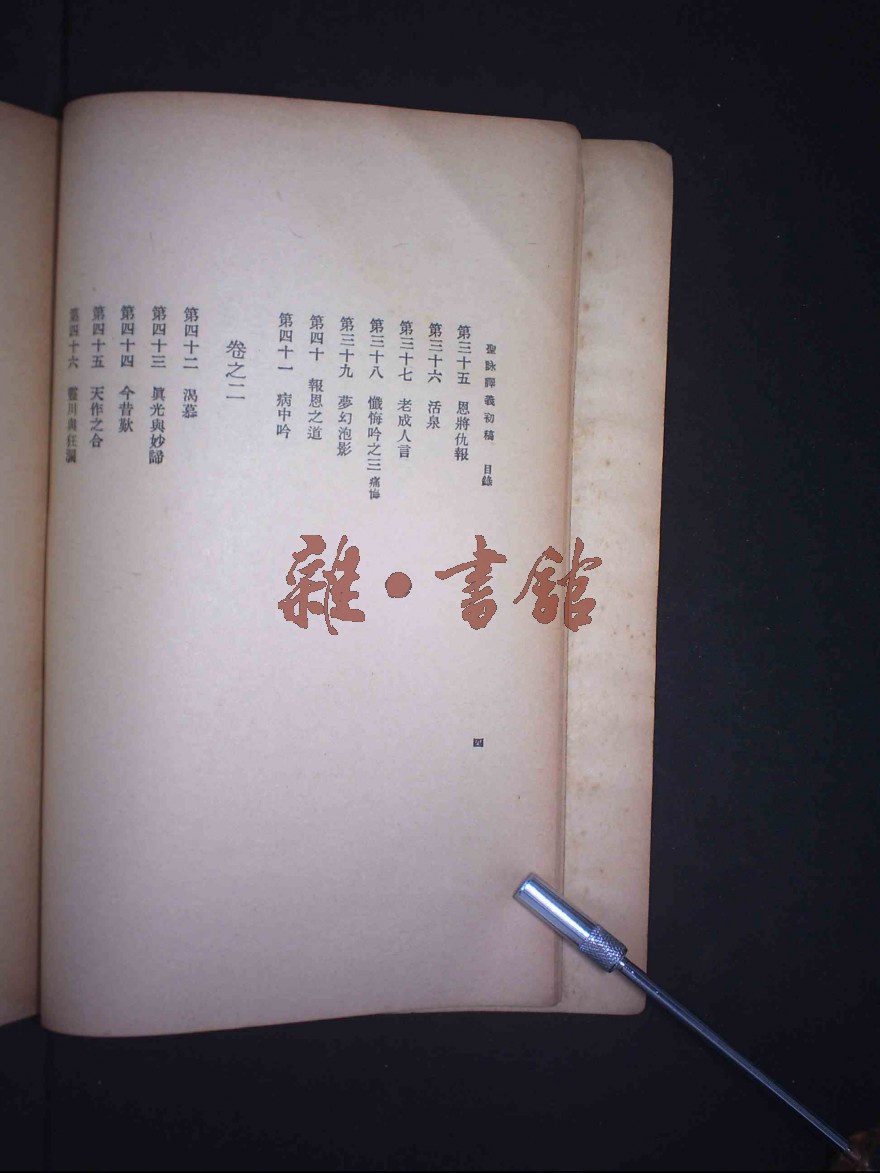 聖詠譯義初稿 目錄
第三十五 恩將仇報
第三十六 活泉
第三十七 老成人言
第三十八 懺悔吟之三 痛悔
第三十九 夢幻泡影
第四十 報恩之道
第四十一 病中吟
卷之二
第四十二 渴慕
第四十三 眞光與妙諦
第四十四 今昔歎
第四十五 天作之合
第四十六 靈川與狂瀾
四
雜·書館